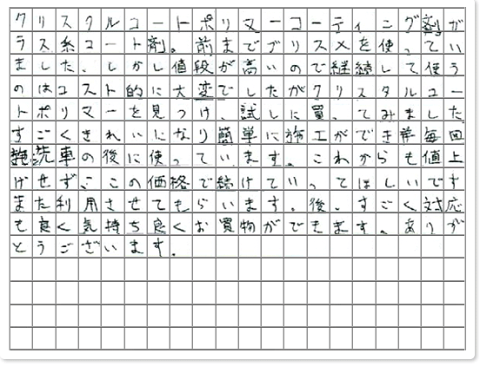 クリスタルコートポリマーコーティング剤が
ラス系コート剤。前までブリスメを使ってい
ました。しかし値段が高いので継続して使う
のはコスト的に大変でしたがクリスタルコー
トポリマーを見つけ、試しに買ってみました
すごくきれいになり簡単に施工ができ毎回
洗車の後に使っています。これからも値上
げせずここの価格で続けていってほしいです
また利用させてもらいます。後、すごく対応
も良く気持ち良くお買物ができます。ありが
とうございます。